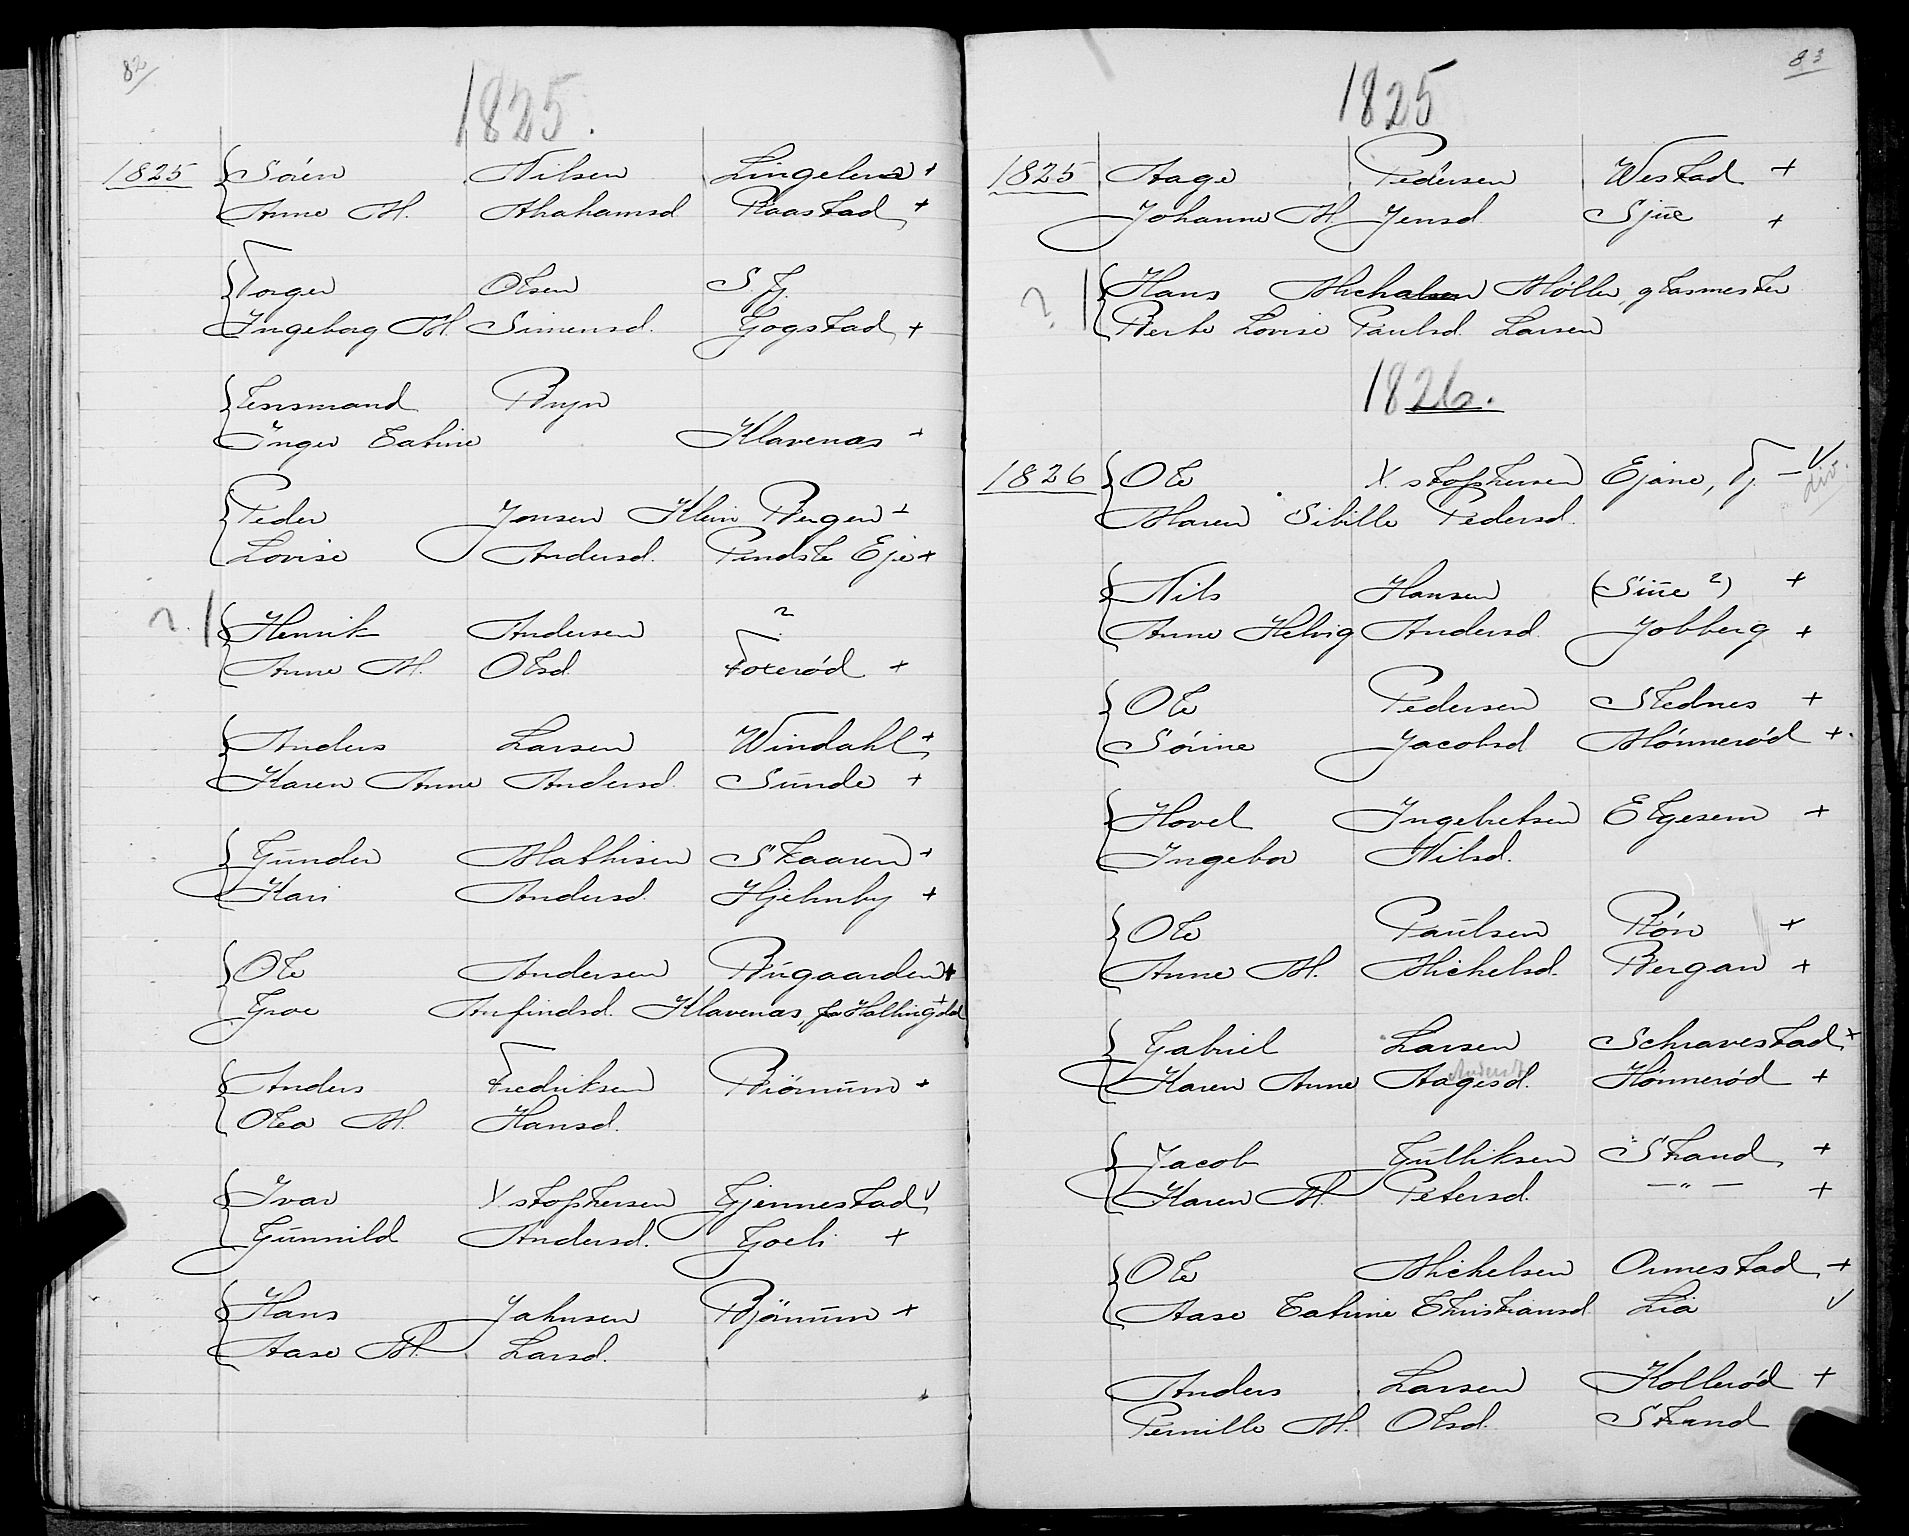 82
1825.
1825 Sören Nilsen Lingelem +
Anne M. Abrahamsd Raastad +
Torger Olsen S. Fj.
Ingeborg M. Simensd. Gogstad +
Lensmand Bryn
Inger Catrine Klavenæs +
Peder Jensen Klein Bergen +
Lovise Andersd. Pindsle Eje +
? Henrik Andersen ?
Anne M. Olsd. Foxerød +
Anders Larsen Windahl +
Karen Anne Andersd. Sunde +
Gunder Mathisen Skaaren +
Kari Andersd. Hjelmby +
Ole Andersen Bugaarden +
Groe Anfindsd. Klavenæs, fra Hallingdal +
Anders Fredriksen Biönnum +
Olea M. Hansd.
Ivar Xstophersen Gjennestad V
Gunnild Andersd. Goeli +
Hans Jahnsen Bjönnum +
Aase M. Larsd.
83
1825
1825 Aage Pedersen Westad +
Johanne M. Jensd. Sjue +
? Hans Michalsen Møller, glasmester
Berte Lovise Paulsd. Larsen
1826.
1826 Ole Xstophersen Ejane, Tj. – V
Maren Sibille Pedersd.
Nils Hansen (Siue ?) +
Anne Helvig Andersd. Jobberg +
Ole Pedersen Stednes +
Sörine Jacobsd Mönnerød +
Hovel Ingebretsen Elgesem +
Ingebor Nilsd.
Ole Paulsen Rön +
Anne M. Michelsd. Bergan +
Gabriel Larsen Schravestad +
Karen Anne Aagesd. Hönnerød +
Jacob Gulliksen Strand +
Karen M. Petersd. — " — +
Ole Michelsen Ormestad +
Aase Catrine Christiansd Lia V
Anders Larsen Hollerød +
Pernille M. Olsd. Strand